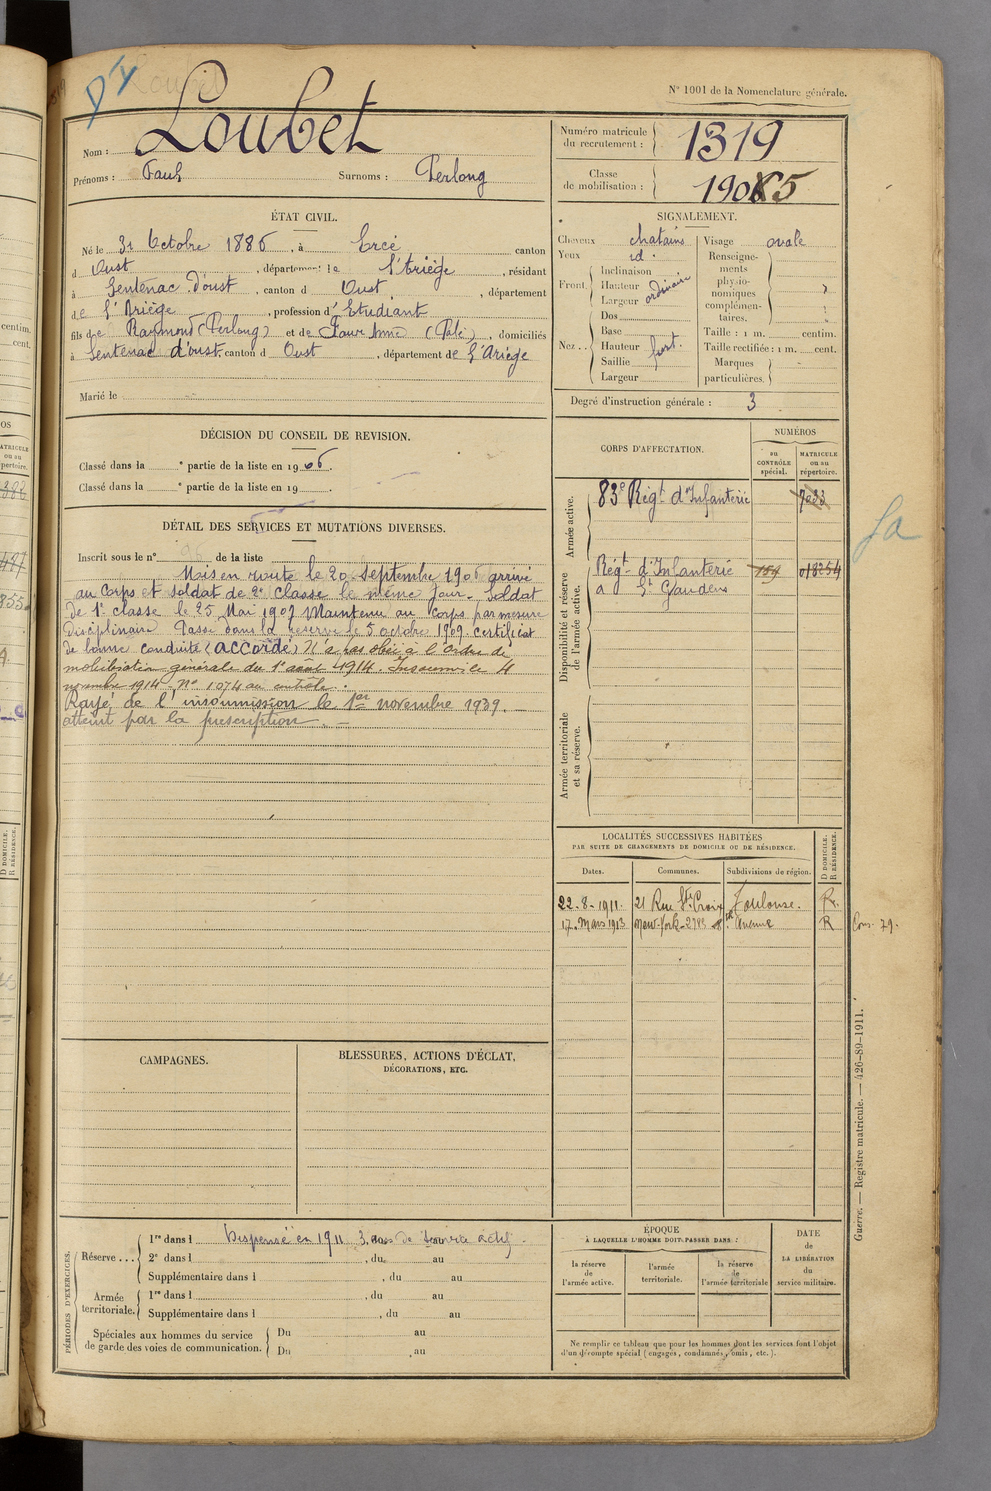 N° 1001 de la Nomenclature générale.
Nom : Loubet
Prénoms : Paul Surnoms : Perlong
Numéro matricule du recrutement : 1319
Classe de mobilisation : 1905
ÉTAT CIVIL.
Né le 31 Octobre 1886, à Ercé canton
d Oust, département de l'Ariège, résidant
à Sentenac d'oust, canton d Oust, département
de l'Ariège, profession d'Etudiant
fils de Raymond (Perlong) et de Faur Anne, domiciliés
à Sentenac d'oust, canton d Oust, département de l'Ariège
Marié le
SIGNALEMENT.
Cheveux chatains
Yeux id.
Front Inclinaison
Hauteur
Largeur
ordinaire
Nez.. Dos
Base
Hauteur
Saillie
Largeur
fort.
Visage ovale
Renseignements physionomiques complémentaires.
Taille : 1 m. centim.
Taille rectifiée : 1 m. cent.
Marques particulières.
Degré d'instruction générale : 3
DÉCISION DU CONSEIL DE REVISION.
Classé dans la ° partie de la liste en 1906.
Classé dans la ° partie de la liste en 19 .
DÉTAIL DES SERVICES ET MUTATIONS DIVERSES.
Inscrit sous le n° de la liste
Mis en route le 20 septembre 1906 arrivé
au corps et soldat de 2e classe le même jour. Soldat
de 1e classe le 25 Mai 1907 Maintenu au corps par mesure
disciplinaire Passé dans la réserve le 5 octobre 1909. certificat
de bonne conduite (accordé) N'a pas obéi à l'ordre de
mobilisation générale du 1er août 1914. Insoumis le 4
novembre 1914. N° 1074 au contrôle.
Rayé de l'insoumission le 1er novembre 1939.
atteint par la prescription.
CORPS D'AFFECTATION.
NUMÉROS
au CONTRÔLE spécial.
MATRICULE ou au répertoire.
Armée active.
83e Régt d'Infanterie
Disponibilité et réserve de l'armée active.
Régt d'Infanterie
à St Gaudens
Armée territoriale et sa réserve.
LOCALITÉS SUCCESSIVES HABITÉES
PAR SUITE DE CHANGEMENTS DE DOMICILE OU DE RÉSIDENCE.
Dates. Communes. Subdivisions de région. D DOMICILE. R RÉSIDENCE.
22.8.1911. 21 Rue Ste Croix Toulouse. R.
17. Mars 1913 New-York R Cons. 79.
CAMPAGNES.
BLESSURES, ACTIONS D'ÉCLAT,
DÉCORATIONS, ETC.
PÉRIODES D'EXERCICES.
Réserve... 1re dans l Dispensé en 1911 3 ans de service actif.
2e dans l , du au
Supplémentaire dans l , du au
Armée territoriale. 1re dans l , du au
Supplémentaire dans l , du au
Spéciales aux hommes du service de garde des voies de communication. Du au
Du , au
ÉPOQUE
À LAQUELLE L'HOMME DOIT PASSER DANS :
la réserve de l'armée active.
l'armée territoriale.
la réserve de l'armée territoriale
DATE de LA LIBÉRATION du service militaire.
Ne remplir ce tableau que pour les hommes dont les services font l'objet
d'un décompte spécial (engagés, condamnés, omis, etc.).
Guerre. — Registre matricule. — 426-89-1911.